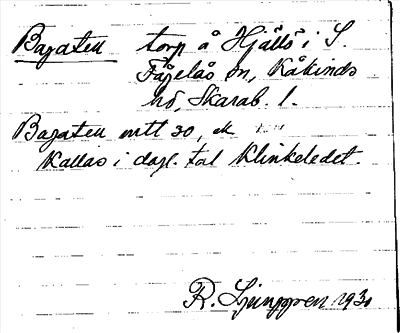 Bagateu torp å Hjällö i S.
Fågelås sn, Kåkinds
hd, Skarab. l.
Bagateu mtt 30, ek
Kallas i dagl. tal Klinkeledet.
R. Ljunggren 1930